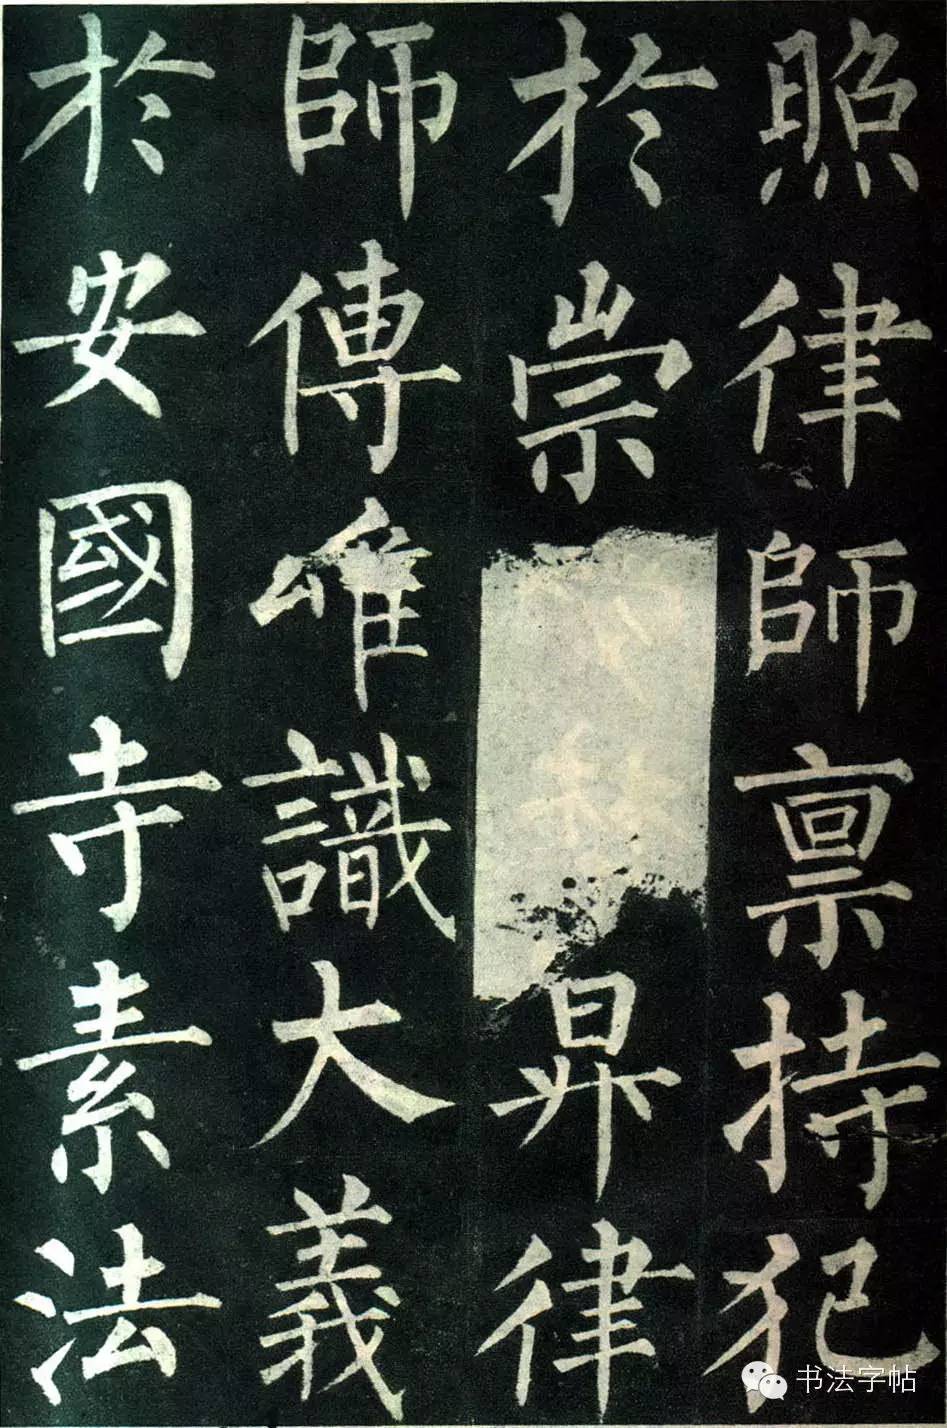 照律師禀持犯
於崇昇律
師傳唯識大義
於安國寺素法
书法字帖